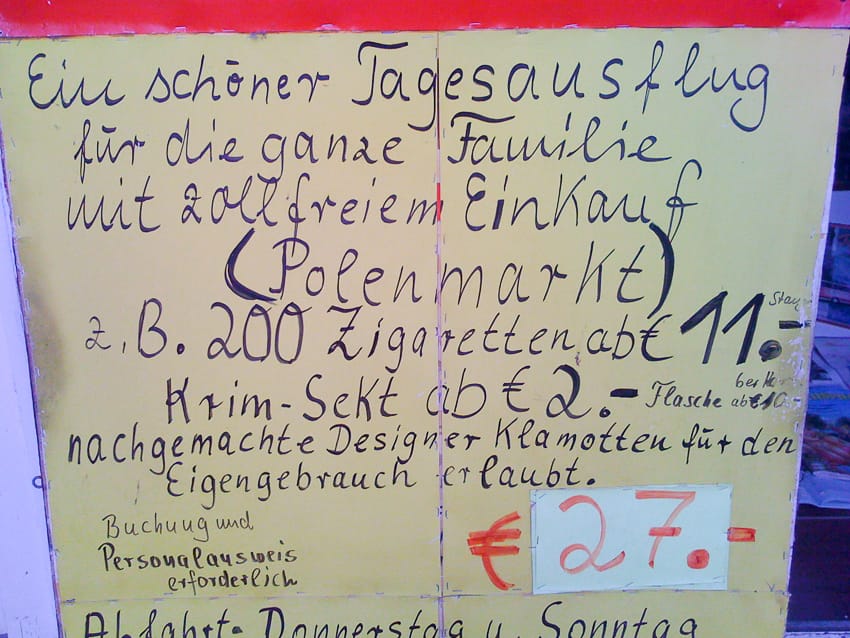 Ein schöner Tagesausflug
für die ganze Familie
mit zollfreiem Einkauf
(Polenmarkt)
z.B. 200 Zigaretten ab € 11.-
Krim-Sekt ab € 2.- Flasche
nachgemachte Designer Klamotten für den
Eigengebrauch erlaubt.
Buchung und
Personalausweis
erforderlich
€ 27.-
Abfahrt: Donnerstag u. Sonntag